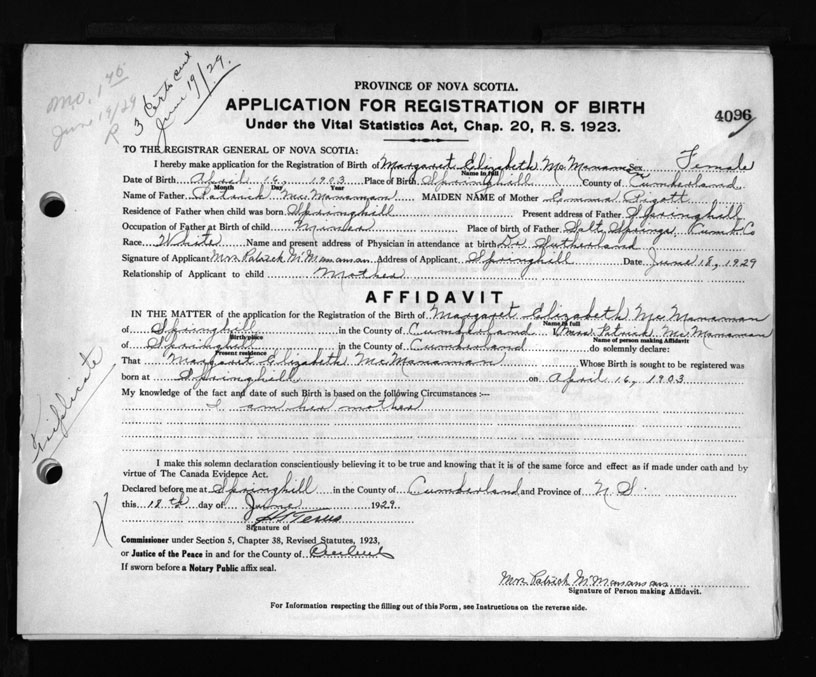 Mo. 1 
June 19/29
R
3 Certs
June 19/29.
PROVINCE OF NOVA SCOTIA.
APPLICATION FOR REGISTRATION OF BIRTH
Under the Vital Statistics Act, Chap. 20, R. S. 1923.
4096
TO THE REGISTRAR GENERAL OF NOVA SCOTIA:
I hereby make application for the Registration of Birth of Margaret Elizabeth McManaman Sex Female
Name in full
Date of Birth April 16, 1903 Place of Birth Springhill County of Cumberland
Month Day Year
Name of Father Patrick McManaman MAIDEN NAME of Mother Emma Pigott
Residence of Father when child was born Springhill Present address of Father Springhill
Occupation of Father at Birth of child Miner Place of birth of Father Salt Springs Cumb. Co
Race White Name and present address of Physician in attendance at birth Dr Sutherland
Signature of Applicant Mrs Patrick McManaman Address of Applicant Springhill Date June 18, 1929
Relationship of Applicant to child Mother
AFFIDAVIT
IN THE MATTER of the application for the Registration of the Birth of Margaret Elizabeth McManaman
Name in full
of Springhill in the County of Cumberland I, Mrs. Patrick McManaman
Birthplace Name of person making Affidavit
of Springhill in the County of Cumberland do solemnly declare:
Present residence
That Margaret Elizabeth McManaman Whose Birth is sought to be registered was
born at Springhill on April 16, 1903
My knowledge of the fact and date of such Birth is based on the following Circumstances :—
I am her mother
Triplicate
I make this solemn declaration conscientiously believing it to be true and knowing that it is of the same force and effect as if made under oath and by
virtue of The Canada Evidence Act.
Declared before me at Springhill in the County of Cumberland and Province of N S.
this 18th day of June 1929.
Signature of
X
Commissioner under Section 5, Chapter 38, Revised Statutes, 1923,
or Justice of the Peace in and for the County of
If sworn before a Notary Public affix seal.
Mrs Patrick McManaman
Signature of Person making Affidavit.
For Information respecting the filling out of this Form, see Instructions on the reverse side.